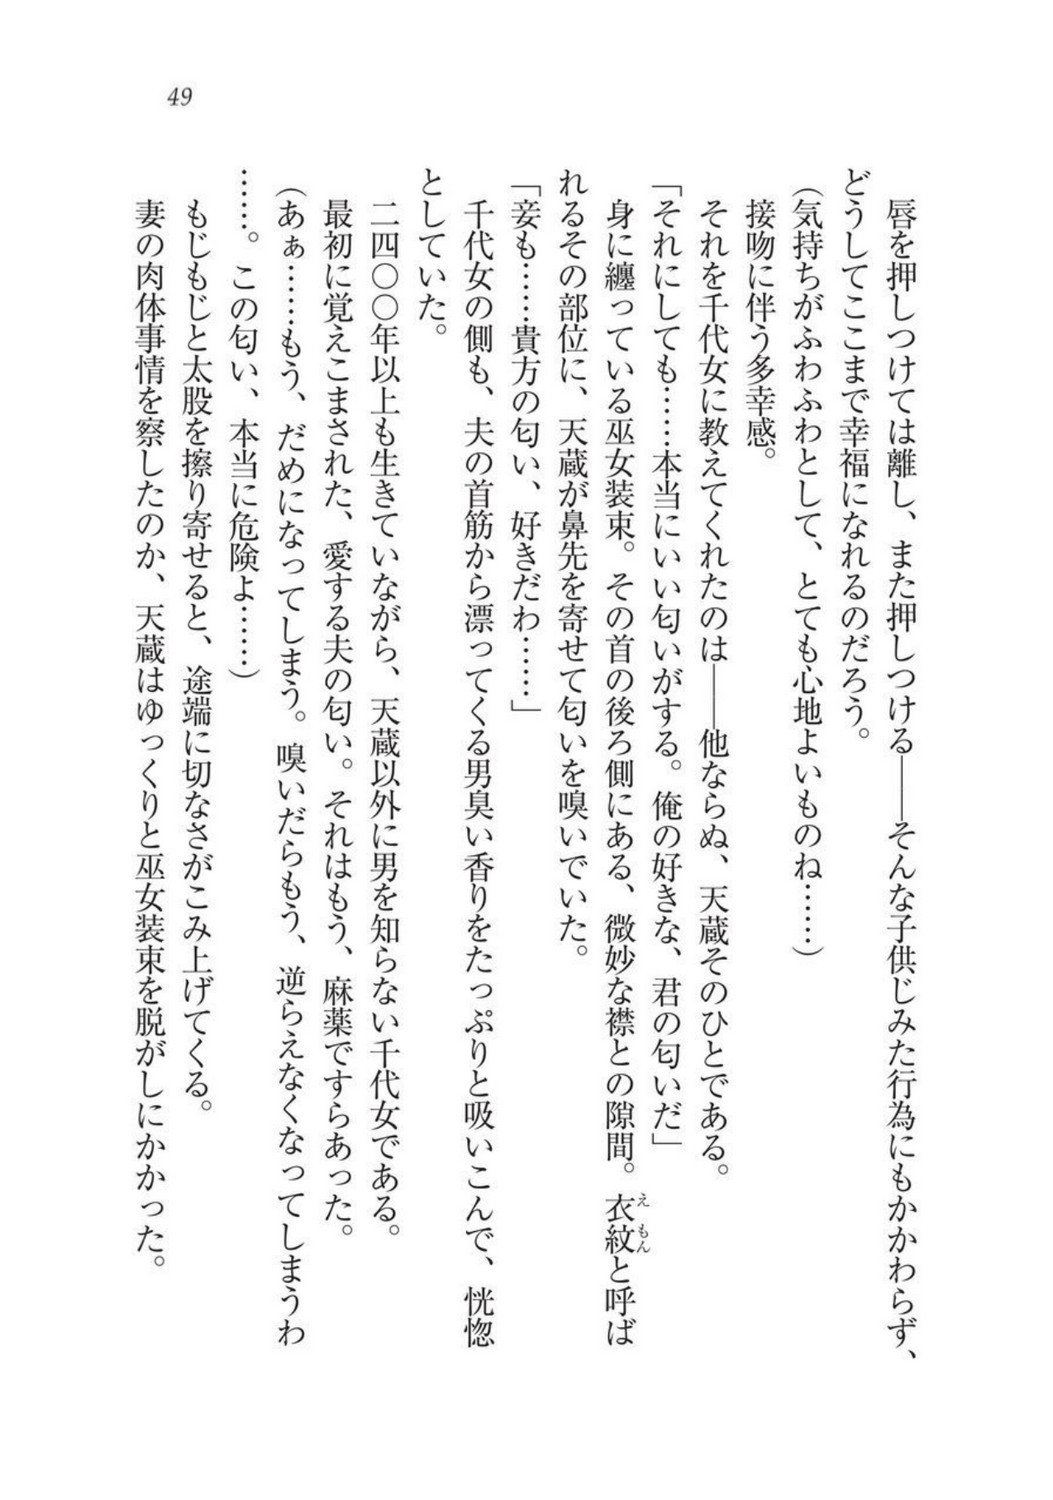 49
唇を押しつけては離し、また押しつける――そんな子供じみた行為にもかかわらず、
どうしてここまで幸福になれるのだろう。
(気持ちがふわふわとして、とても心地よいものね……)
接吻に伴う多幸感。
それを千代女に教えてくれたのは――他ならぬ、天蔵そのひとである。
「それにしても……本当にいい匂いがする。俺の好きな、君の匂いだ」
身に纏っている巫女装束。その首の後ろ側にある、微妙な襟との隙間。衣紋と呼ば
えもん
れるその部位に、天蔵が鼻先を寄せて匂いを嗅いでいた。
「妾も……貴方の匂い、好きだわ……」
千代女の側も、夫の首筋から漂ってくる男臭い香りをたっぷりと吸いこんで、恍惚
としていた。
二四〇〇年以上も生きていながら、天蔵以外に男を知らない千代女である。
最初に覚えこまされた、愛する夫の匂い。それはもう、麻薬ですらあった。
(あぁ……もう、だめになってしまう。嗅いだらもう、逆らえなくなってしまうわ
……。この匂い、本当に危険よ……)
もじもじと太股を擦り寄せると、途端に切なさがこみ上げてくる。
妻の肉体事情を察したのか、天蔵はゆっくりと巫女装束を脱がしにかかった。